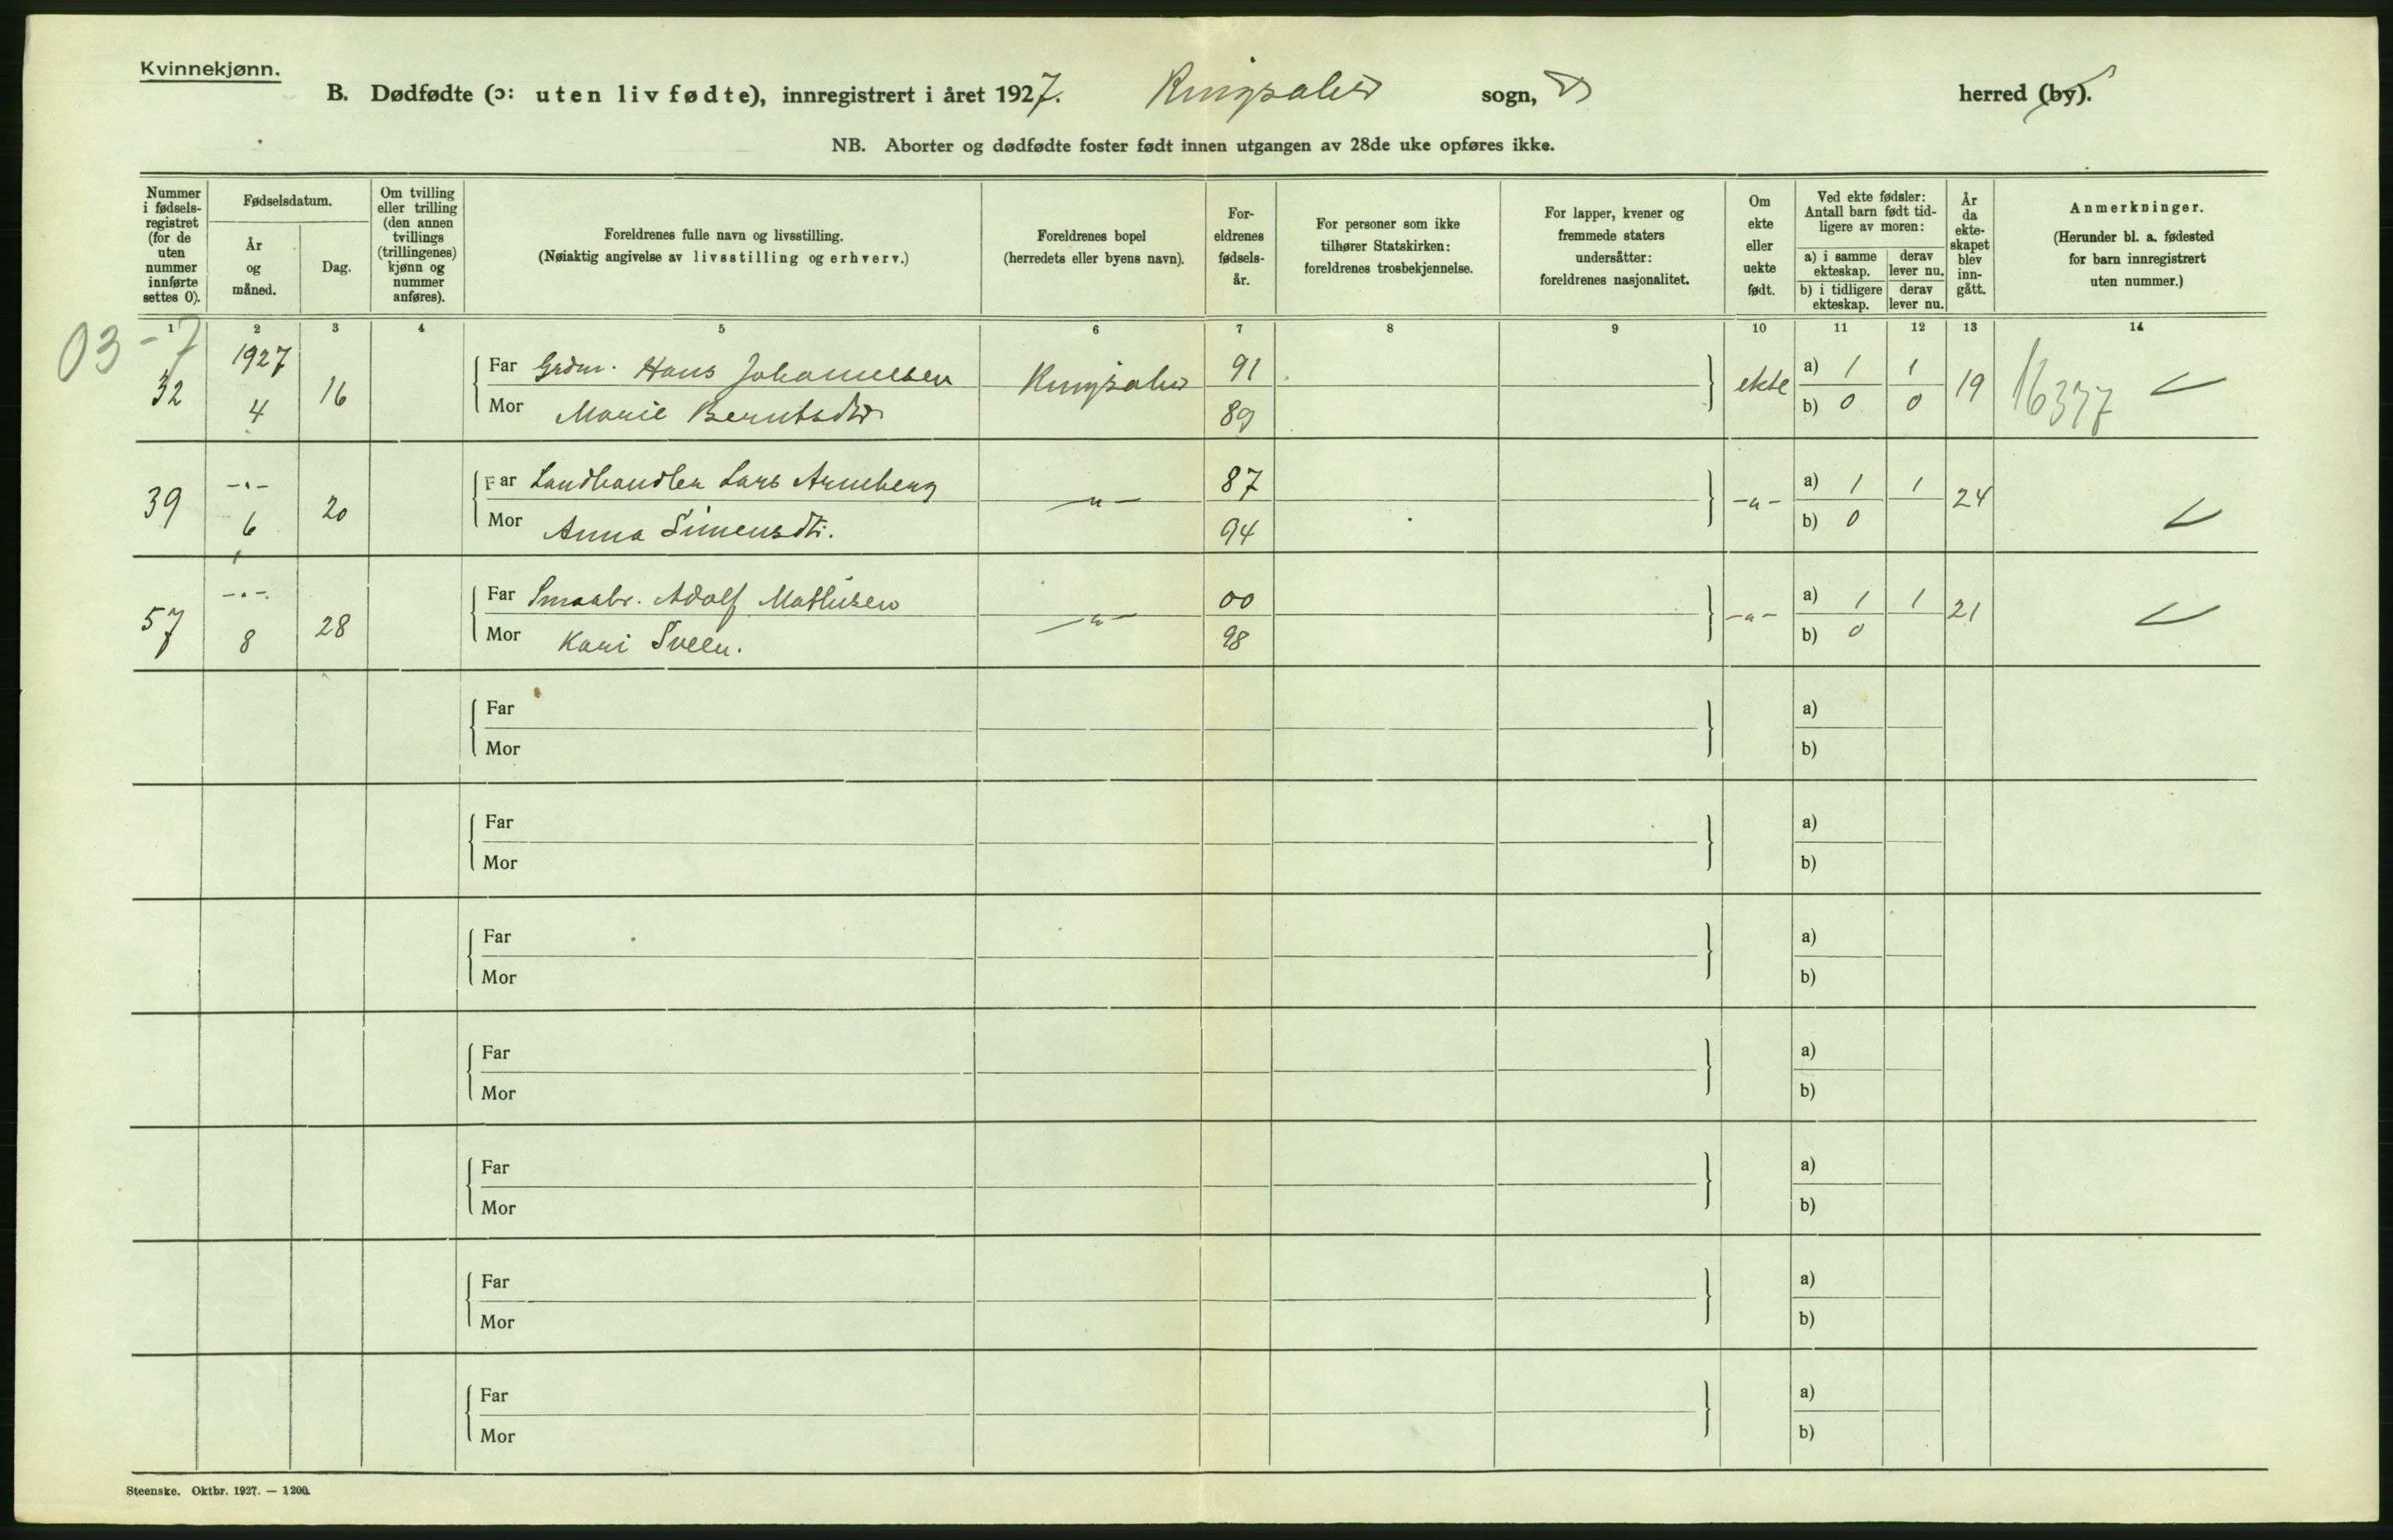 Kvinnekjønn.
B. Dødfødte (ɔ: uten liv fødte), innregistrert i året 1927. Ringsaker sogn, herred (by).
NB. Aborter og dødfødte foster født innen utgangen av 28de uke opføres ikke.
Nummer i fødselsregistret (for de uten nummer innførte settes 0).
Fødselsdatum.
År og måned.
Dag.
Om tvilling eller trilling (den annen tvillings (trillingenes) kjønn og nummer anføres).
Foreldrenes fulle navn og livsstilling.
(Nøiaktig angivelse av livsstilling og erhverv.)
Foreldrenes bopel
(herredets eller byens navn).
Foreldrenes fødselsår.
For personer som ikke tilhører Statskirken: foreldrenes trosbekjennelse.
For lapper, kvener og fremmede staters undersåtter: foreldrenes nasjonalitet.
Om ekte eller uekte født.
Ved ekte fødsler: Antall barn født tidligere av moren:
a) i samme ekteskap. derav lever nu.
b) i tidligere ekteskap. derav lever nu.
År da ekteskapet blev inngått.
Anmerkninger.
(Herunder bl. a. fødested for barn innregistrert uten nummer.)
1 2 3 4 5 6 7 8 9 10 11 12 13 14
03-7
32 1927 4 16 Far Grdm. Hans Johannessen Ringsaker 91 ekte a) 1 1 19 16377
Mor Marie Berntsdtr 89 b) 0 0
39 -"- 6 20 Far Landhandler Lars Arneberg -"- 87 -"- a) 1 1 24
Mor Anna Simensdtr. 94 b) 0
57 -"- 8 28 Far Smaabr. Adolf Mathisen -"- 00 -"- a) 1 1 21
Mor Kari Sveen. 98 b) 0
Far a)
Mor b)
Far a)
Mor b)
Far a)
Mor b)
Far a)
Mor b)
Far a)
Mor b)
Far a)
Mor b)
Far a)
Mor b)
Steenske. Oktbr. 1927. — 1200.